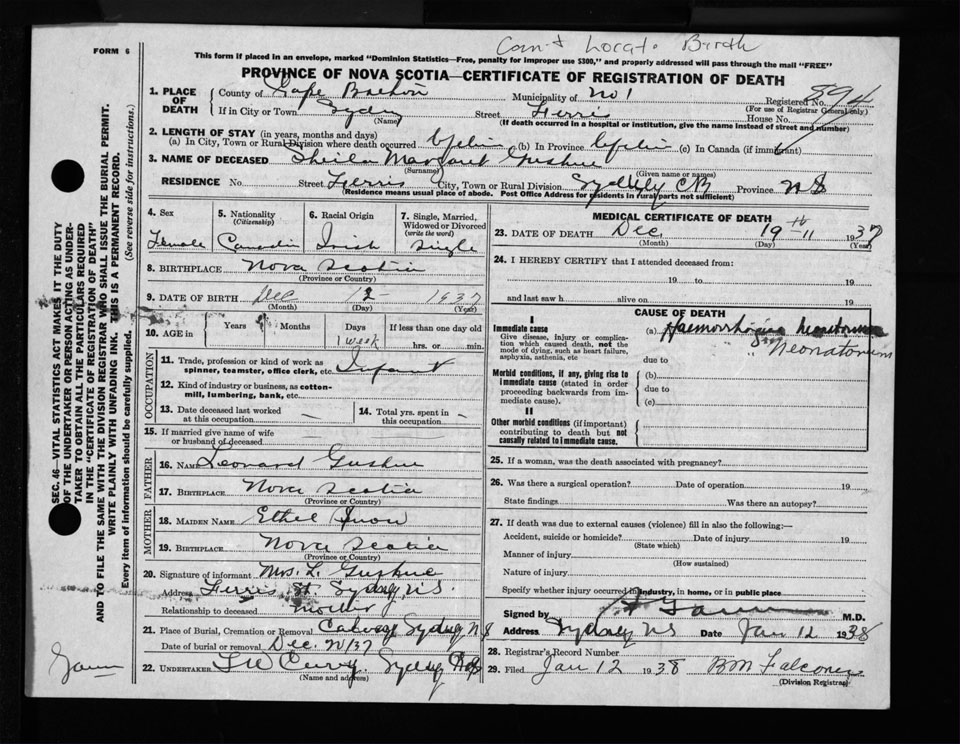 Can't Locate Birth
FORM 6
This form if placed in an envelope, marked "Dominion Statistics—Free, penalty for improper use $300," and properly addressed will pass through the mail "FREE"
PROVINCE OF NOVA SCOTIA—CERTIFICATE OF REGISTRATION OF DEATH
894
1. PLACE OF DEATH
County of Cape Breton Municipality of No 1 Registered No.
(For use of Registrar General only)
If in City or Town Sydney Street Ferris House No.
(Name) (If death occurred in a hospital or institution, give the name instead of street and number)
2. LENGTH OF STAY (in years, months and days)
(a) In City, Town or Rural Division where death occurred Life (b) In Province Life (c) In Canada (if immigrant)
3. NAME OF DECEASED Sheila Margaret Gushue
(Surname) (Given name or names)
RESIDENCE No. Street Ferris City, Town or Rural Division Sydney CB Province NS
(Residence means usual place of abode. Post Office Address for residents in rural parts not sufficient)
4. Sex
Female
5. Nationality
(Citizenship)
Canadian
6. Racial Origin
Irish
7. Single, Married, Widowed or Divorced
(write the word)
Single
8. BIRTHPLACE Nova Scotia
(Province or Country)
9. DATE OF BIRTH Dec 12 1937
(Month) (Day) (Year)
10. AGE in Years Months Days If less than one day old
1 week hrs. or min.
OCCUPATION
11. Trade, profession or kind of work as
spinner, teamster, office clerk, etc. Infant
12. Kind of industry or business, as cotton-
mill, lumbering, bank, etc.
13. Date deceased last worked
at this occupation
14. Total yrs. spent in
this occupation
15. If married give name of wife
or husband of deceased
FATHER
16. NAME Leonard Gushue
17. BIRTHPLACE Nova Scotia
(Province or Country)
MOTHER
18. MAIDEN NAME Ethel Snow
19. BIRTHPLACE Nova Scotia
(Province or Country)
20. Signature of informant Mrs. L. Gushue
Address Ferris St. Sydney N.S.
Relationship to deceased Mother
21. Place of Burial, Cremation or Removal Calvary Sydney NS
Date of burial or removal Dec. 20/37
22. UNDERTAKER Sydney
(Name and address)
MEDICAL CERTIFICATE OF DEATH
23. DATE OF DEATH Dec, 19 th 1937
(Month) (Day) (Year)
24. I HEREBY CERTIFY that I attended deceased from:
19 to 19
and last saw h alive on 19
CAUSE OF DEATH
I
Immediate cause
Give disease, injury or complication which caused death, not the mode of dying, such as heart failure, asphyxia, asthenia, etc
(a) Haemorrhagica neonatorum
" Neonatorum
due to
Morbid conditions, if any, giving rise to immediate cause (stated in order proceeding backwards from immediate cause).
(b)
due to
(c)
II
Other morbid conditions (if important) contributing to death but not causally related to immediate cause.
25. If a woman, was the death associated with pregnancy?
26. Was there a surgical operation? Date of operation 19
State findings Was there an autopsy?
27. If death was due to external causes (violence) fill in also the following:—
Accident, suicide or homicide? Date of injury 19
(State which)
Manner of injury
(How sustained)
Nature of injury
Specify whether injury occurred in industry, in home, or in public place
Signed by M.D.
Address Sydney NS Date Jan 12 1938
28. Registrar's Record Number
29. Filed Jan 12 1938 BM Falconer
(Division Registrar)
SEC. 46—VITAL STATISTICS ACT MAKES IT THE DUTY
OF THE UNDERTAKER OR PERSON ACTING AS UNDER-
TAKER TO OBTAIN ALL THE PARTICULARS REQUIRED
IN THE "CERTIFICATE OF REGISTRATION OF DEATH"
AND TO FILE THE SAME WITH THE DIVISION REGISTRAR WHO SHALL ISSUE THE BURIAL PERMIT.
WRITE PLAINLY WITH UNFADING INK. THIS IS A PERMANENT RECORD.
Every item of information should be carefully supplied. (See reverse side for instructions.)